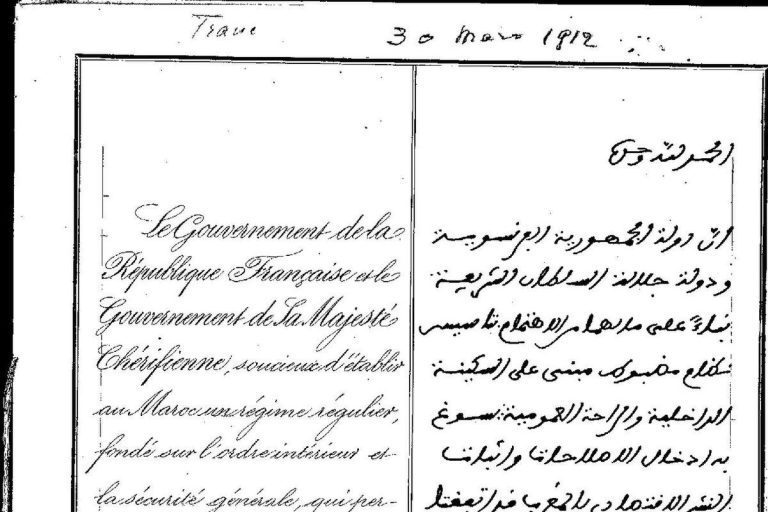 30 Mars 1912
Le Gouvernement de la
République Française et le
Gouvernement de Sa Majesté
Chérifienne, soucieux d'établir
au Maroc un régime régulier,
fondé sur l'ordre intérieur et
la sécurité générale, qui per-
الحمد لله وحده
ان دولة الجمهورية الفرنسوية
ودولة جلالة السلطان الشريفة
بناء على ما لهما من الاهتمام بتأسيس
نظام مضبوط مبني على السكينة
الداخلية والراحة العمومية يسوغ
به ادخال الاصلاحات واثبات
النشر الاقتصادي بالمغرب قد اتفقتا